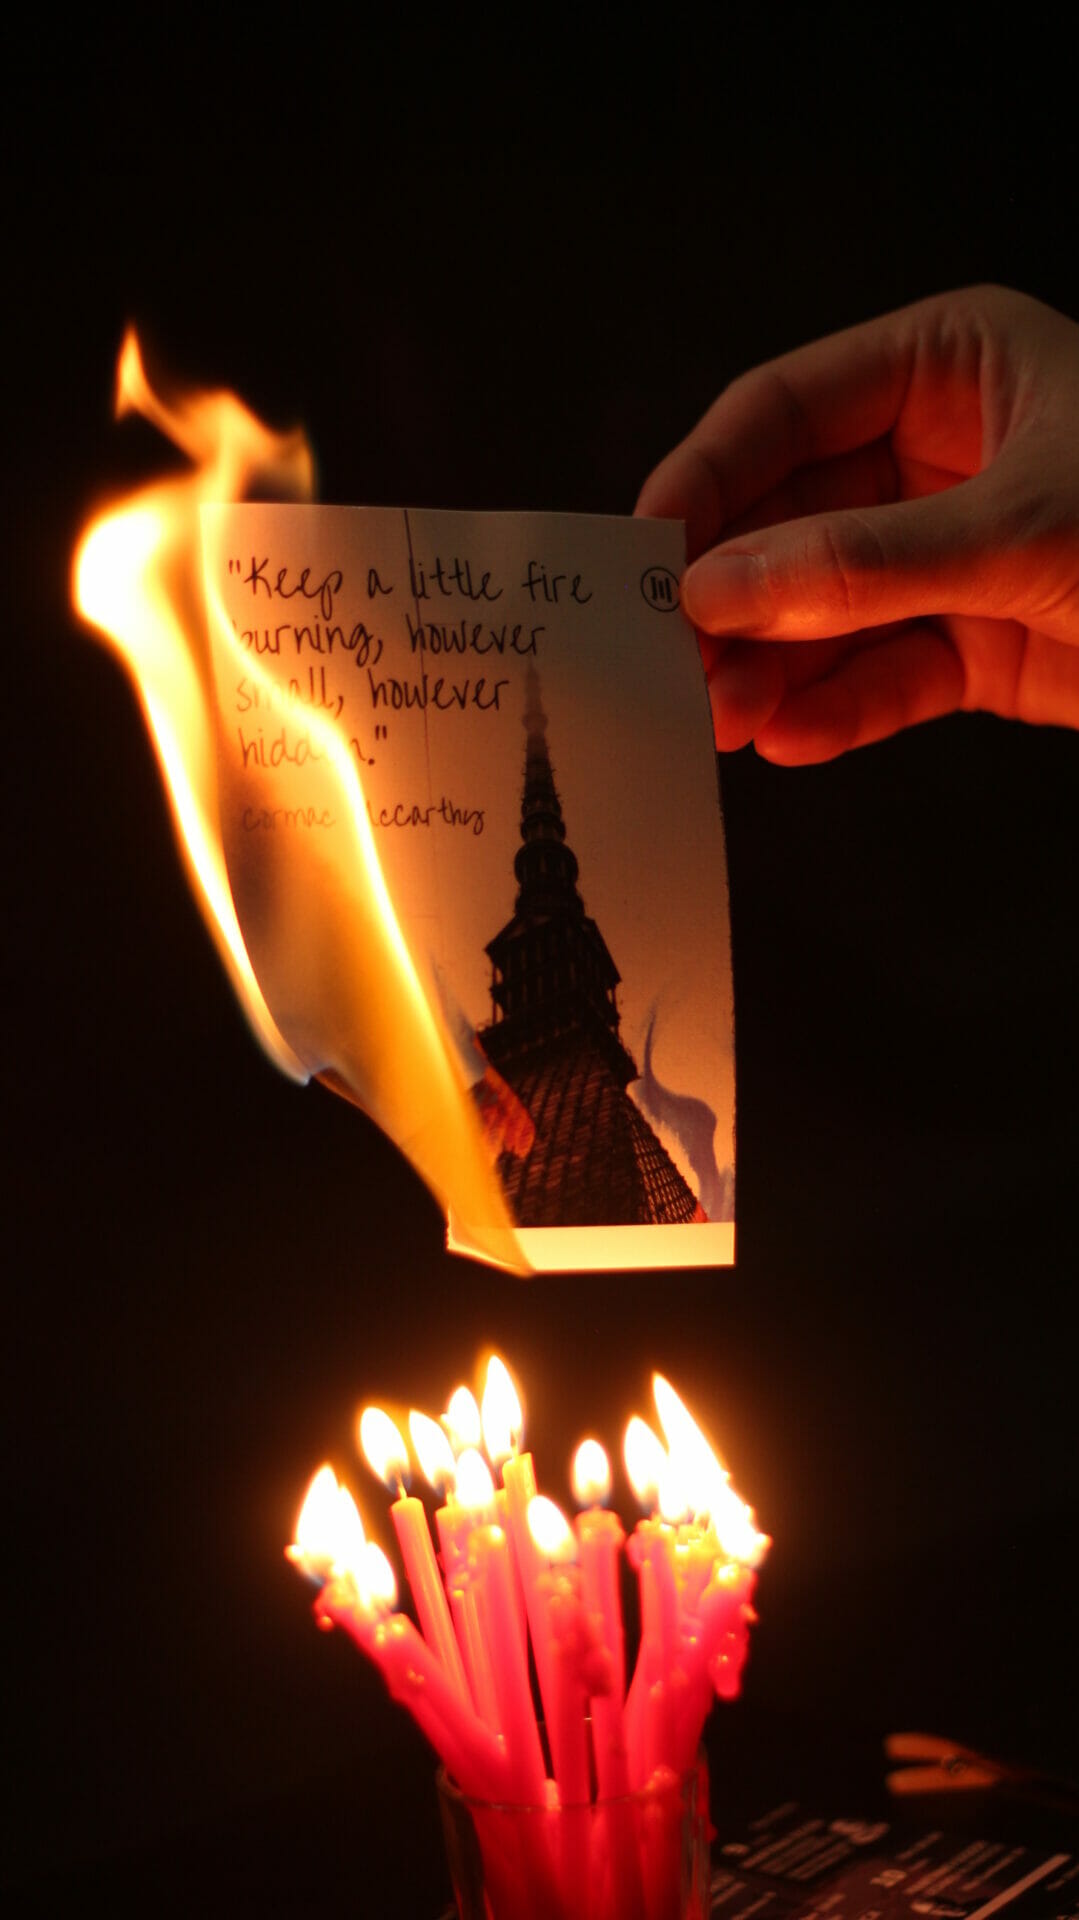 "Keep a little fire
burning, however
small, however
hidden."
cormac McCarthy